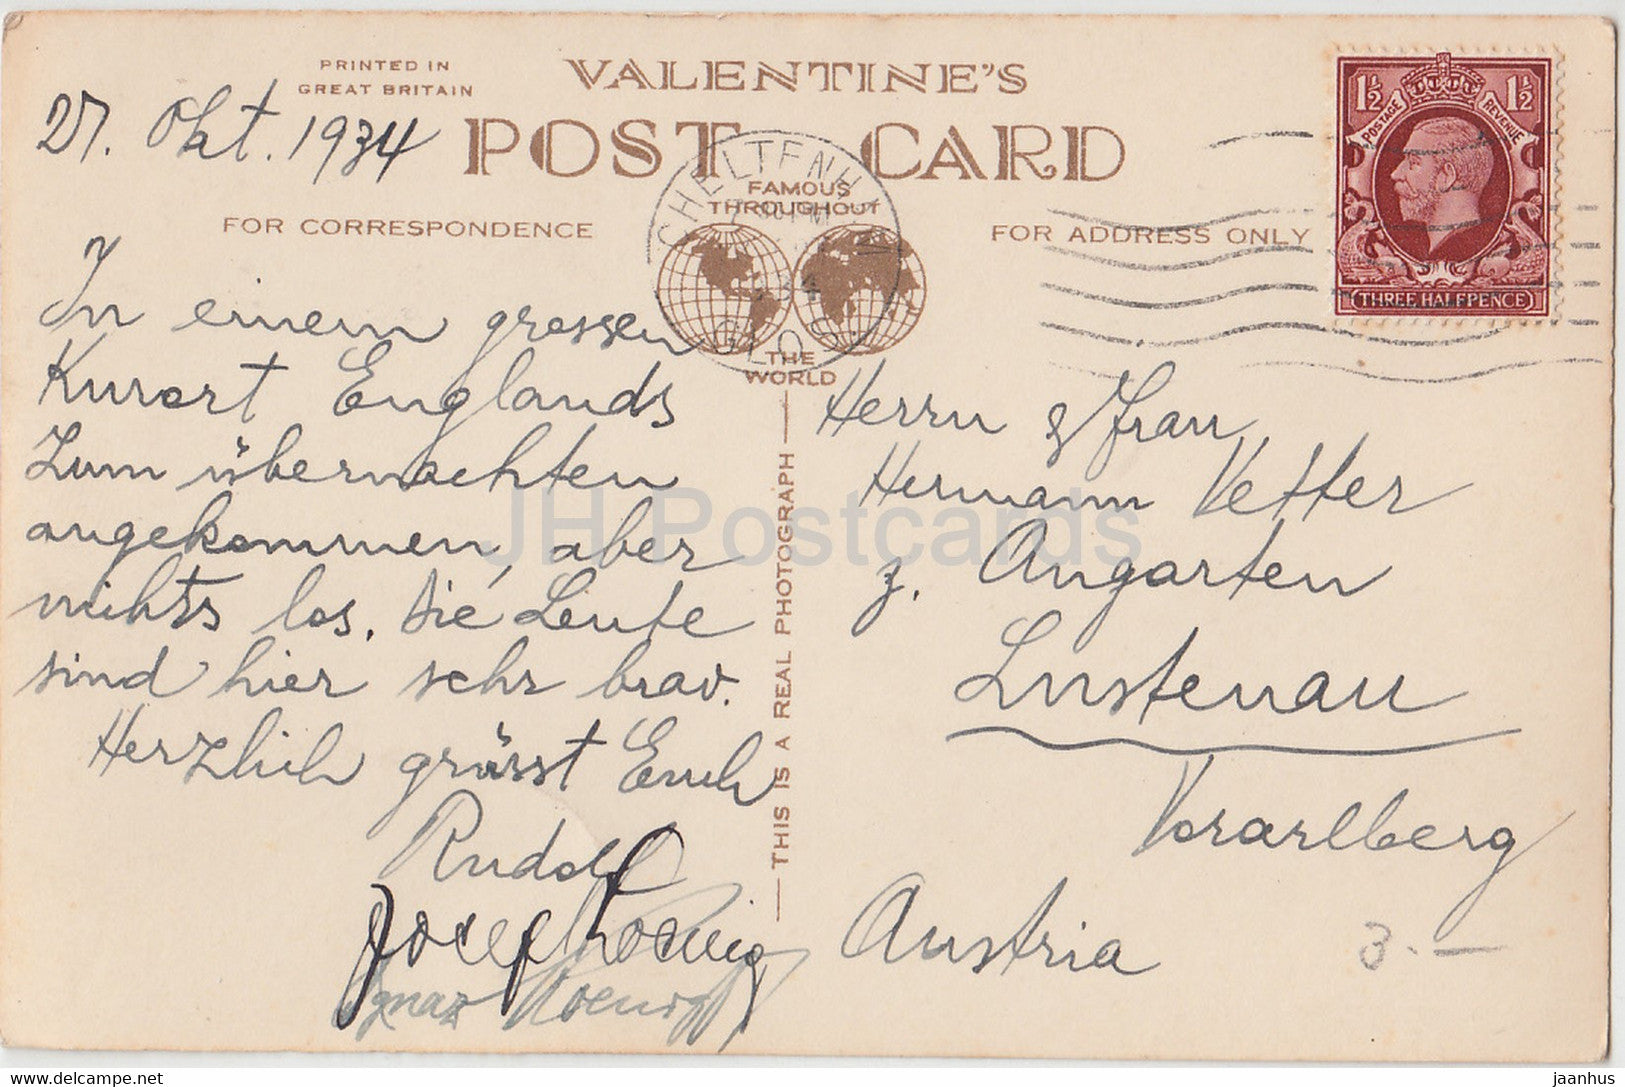 PRINTED IN
GREAT BRITAIN
VALENTINE'S
POST CARD
27. Okt. 1934
FAMOUS
THROUGHOUT
THE
WORLD
CHELTENHAM
GLOS.
FOR CORRESPONDENCE
FOR ADDRESS ONLY
1½ 1½
POSTAGE REVENUE
THREE HALFPENCE
In einem grossen
Kurort Englands
zum übernachten
angekommen, aber
nichts los. Die Leute
sind hier sehr brav.
Herzlich grüsst Euch
Rudolf
Josef Koenig
Ignaz Koenig
THIS IS A REAL PHOTOGRAPH
Herrn & Frau
Hermann Vetter
z. Angarten
Lustenau
Vorarlberg
Austria
3.—
JH Postcards
www.delcampe.net
jaanhus